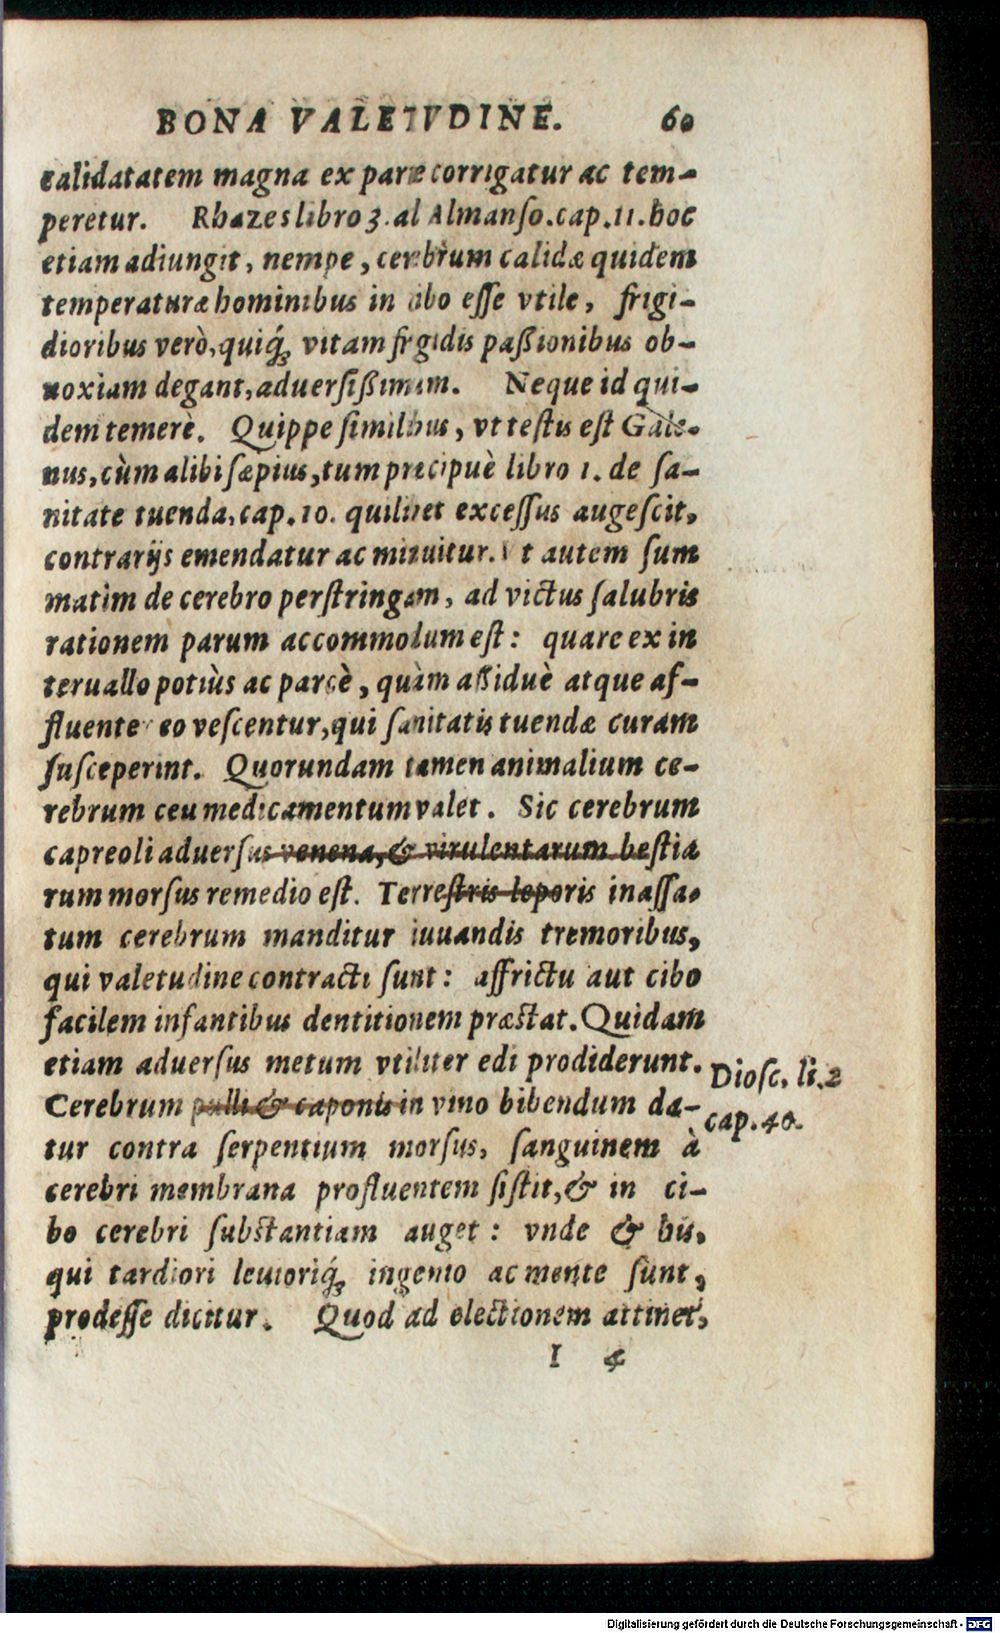 BONA VALETVDINE. 60
calidatatem magna ex parte corrigatur ac tem-
peretur. Rhazes libro 3. al Almanso. cap. 11. hoc
etiam adiungit, nempe, cerebrum calidæ quidem
temperaturæ hominibus in cibo esse vtile, frigi-
dioribus verò, quiq́ꝫ vitam frigidis paßionibus ob-
noxiam degant, aduersißimum. Neque id qui-
dem temerè. Quippe similibus, vt testis est Gale-
nus, cùm alibi sæpius, tum præcipuè libro 1. de sa-
nitate tuenda, cap. 10. quilibet excessus augescit,
contrarijs emendatur ac minuitur. Vt autem sum
matìm de cerebro perstringam, ad victus salubris
rationem parum accommodum est: quare ex in
teruallo potiùs ac parcè, quàm assiduè atque af-
fluenter eo vescentur, qui sanitatis tuendæ curam
susceperint. Quorundam tamen animalium ce-
rebrum ceu medicamentum valet. Sic cerebrum
capreoli aduersus venena, & virulentarum bestia
rum morsus remedio est. Terrestris leporis inassa-
tum cerebrum manditur iuuandis tremoribus,
qui valetudine contracti sunt: affrictu aut cibo
facilem infantibus dentitionem præstat. Quidam
etiam aduersus metum vtiliter edi prodiderunt.
Diosc. li. 2
cap. 40.
Cerebrum pulli & caponis in vino bibendum da-
tur contra serpentium morsus, sanguinem à
cerebri membrana profluentem sistit, & in ci-
bo cerebri substantiam auget: vnde & his,
qui tardiori leuioriq́ꝫ ingenio ac mente sunt,
prodesse dicitur. Quod ad electionem attinet,
I 4
Digitalisierung gefördert durch die Deutsche Forschungsgemeinschaft - DFG